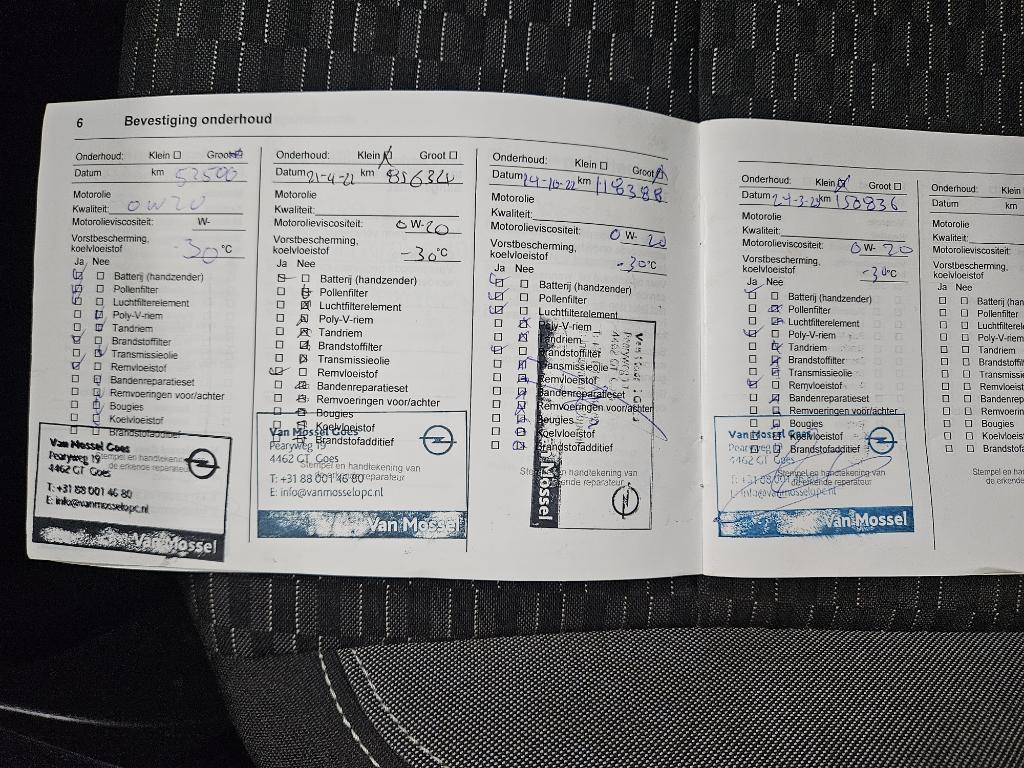 6 Bevestiging onderhoud
Onderhoud: Klein Groot
Datum km 52500
Motorolie
Kwaliteit: 0W20
Motorolieviscositeit: W-
Vorstbescherming,
koelvloeistof -30°C
Ja Nee
Batterij (handzender)
Pollenfilter
Luchtfilterelement
Poly-V-riem
Tandriem
Brandstoffilter
Transmissieolie
Remvloeistof
Bandenreparatieset
Remvoeringen voor/achter
Bougies
Koelvloeistof
Brandstofadditief
Stempel en handtekening van
de erkende reparateur
Van Mossel Goes
Pearyweg 19
4462 GT Goes
T: +31 88 001 46 80
E: info@vanmosselopc.nl
Van Mossel
Onderhoud: Klein Groot
Datum 21-4-22 km
Motorolie
Kwaliteit:
Motorolieviscositeit: 0 W-20
Vorstbescherming,
koelvloeistof -30°C
Ja Nee
Batterij (handzender)
Pollenfilter
Luchtfilterelement
Poly-V-riem
Tandriem
Brandstoffilter
Transmissieolie
Remvloeistof
Bandenreparatieset
Remvoeringen voor/achter
Bougies
Koelvloeistof
Brandstofadditief
Stempel en handtekening van
de erkende reparateur
Van Mossel Goes
Pearyweg 19
4462 GT Goes
T: +31 88 001 46 80
E: info@vanmosselopc.nl
Van Mossel
Onderhoud: Klein Groot
Datum 24-10-22 km 118388
Motorolie
Kwaliteit:
Motorolieviscositeit: 0 W-20
Vorstbescherming,
koelvloeistof -30°C
Ja Nee
Batterij (handzender)
Pollenfilter
Luchtfilterelement
Poly-V-riem
Tandriem
Brandstoffilter
Transmissieolie
Remvloeistof
Bandenreparatieset
Remvoeringen voor/achter
Bougies
Koelvloeistof
Brandstofadditief
Stempel en handtekening van
de erkende reparateur
4462 GT
Mossel
Onderhoud: Klein Groot
Datum km 150836
Motorolie
Kwaliteit:
Motorolieviscositeit: 0 W-20
Vorstbescherming,
koelvloeistof -30°C
Ja Nee
Batterij (handzender)
Pollenfilter
Luchtfilterelement
Poly-V-riem
Tandriem
Brandstoffilter
Transmissieolie
Remvloeistof
Bandenreparatieset
Remvoeringen voor/achter
Bougies
Koelvloeistof
Brandstofadditief
Stempel en handtekening van
de erkende reparateur
Van Mossel Goes
Pearyweg 19
4462 GT Goes
Van Mossel
Onderhoud: Kl
Datum km
Motorolie
Kwaliteit:
Motorolieviscositeit:
Vorstbescherming,
koelvloeistof
Ja Nee
Batterij (han
Pollenfilter
Luchtfiltere
Poly-V-riem
Tandriem
Brandstoffi
Transmissi
Remvloeist
Bandenrep
Remvoerin
Bougies
Koelvloeist
Brandstofa
Stempel en h
de erkend